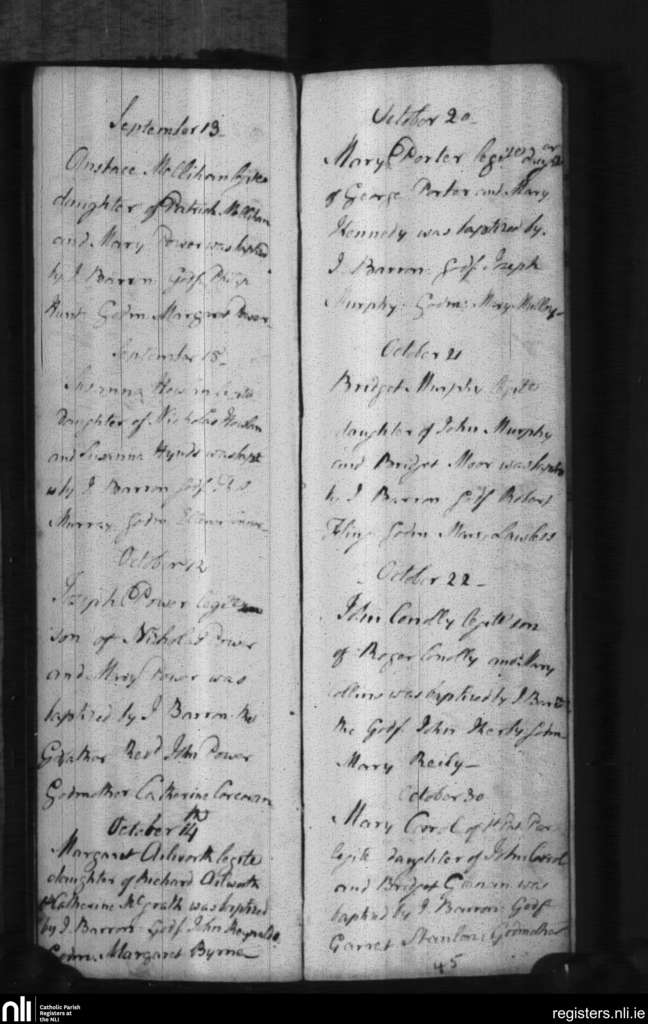 September 13
Anstace Mollihan legite
daughter of Patrick Mollihan
and Mary Power was baptised
by J. Barron Godf. Philip
Hunt Godm Margaret Power
September 15
Susanna legite
Daughter of Nicholas
and Susanna Hynds was bapt
by J Barron Godf.
Murray Godm Ellenor
October 12
Joseph Power legite
son of Nicholas Power
and Mary Power was
baptized by J Barron the
Godfather Revd John Power
Godmother Catherine Corcoran
October 14th
Margaret Ailworth legite
daughter of Richard Ailworth
& Catherine McGrath was baptized
by J. Barron. Godf John Reynolds
Godm. Margaret Byrne
October 20
Mary Porter legite daughter
of George Porter and Mary
Kennedy was baptized by
J. Barron. Godf. Joseph
Murphy. Godm. Mary
October 21
Bridget Murphy legite
daughter of John Murphy
and Bridget Moor was
by J Barron Godf Robert
Godm Mary Lawless
October 22
John Conolly legite son
of Roger Conolly and Mary
Collins was baptized by J Barron
the Godf John Kerby Godm
Mary Reily
October 30
Mary Corrol of
legite daughter of John Corrol
and Bridget was
baptized by J. Barron. Godf
Garret Stanton Godmother
45
nli
Catholic Parish
Registers at
the NLI
registers.nli.ie